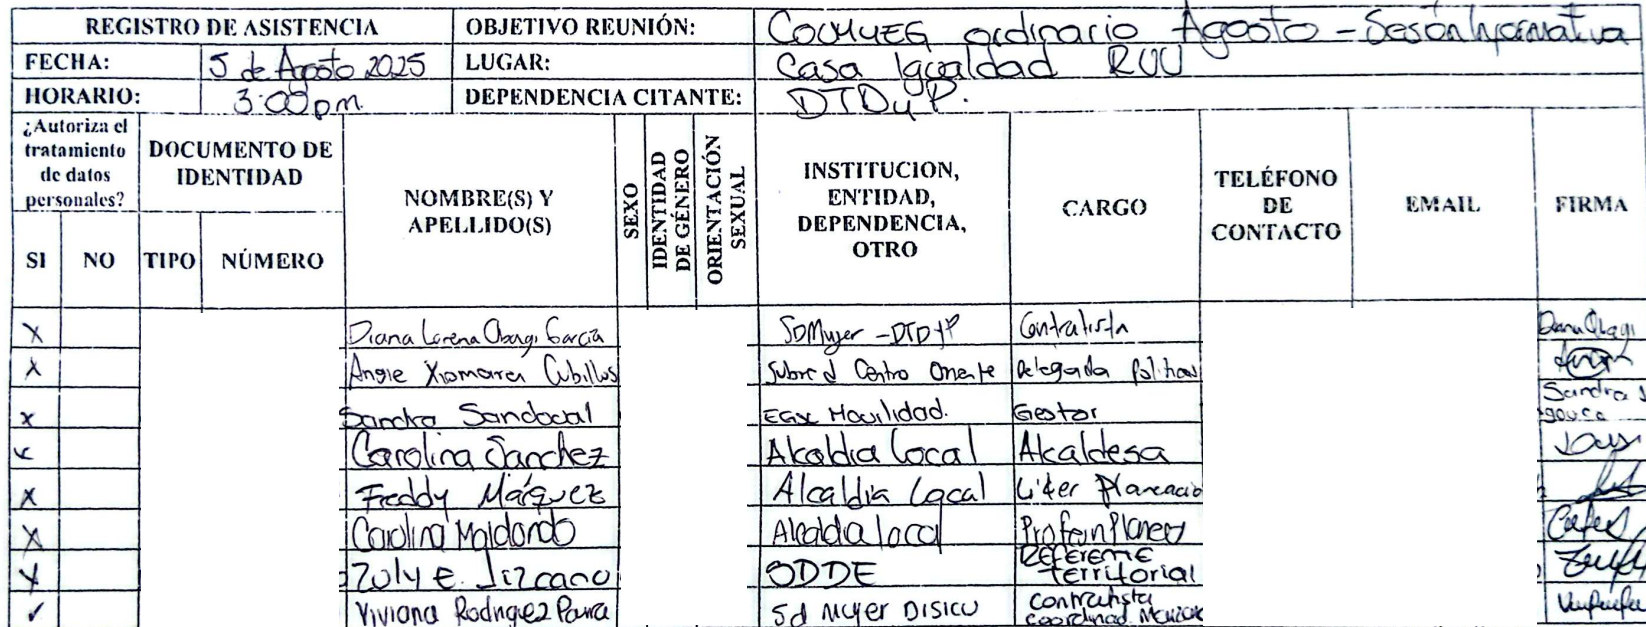 REGISTRO DE ASISTENCIA OBJETIVO REUNIÓN: COLMYEG ordinario Agosto - Sesión Informativa
FECHA: 5 de Agosto 2025 LUGAR: Casa Igualdad RUU
HORARIO: 3:00 pm. DEPENDENCIA CITANTE: DTDyP.
¿Autoriza el tratamiento de datos personales?
SI NO
DOCUMENTO DE IDENTIDAD
TIPO NÚMERO
NOMBRE(S) Y APELLIDO(S)
SEXO
IDENTIDAD DE GÉNERO
ORIENTACIÓN SEXUAL
INSTITUCION, ENTIDAD, DEPENDENCIA, OTRO
CARGO
TELÉFONO DE CONTACTO
EMAIL
FIRMA
X Diana Lorena Obagi García SDMujer - DTDyP Contratista Diana Obagi
X Angie Xiomara Cubillos Subred Centro Oriente Delegada Politicas
x Sandra Sandoval Movilidad. Gestor Sandra S
Carolina Sanchez Alcaldia Local Alcaldesa
X Freddy Márquez Alcaldia Local Lider Planeacio
X Carolina Maldonado Alcaldia local
X Zuly E. Lizcano SDDE Referente territorial
✓ Viviana Rodriguez Parra Sd Mujer DISICU Contratista